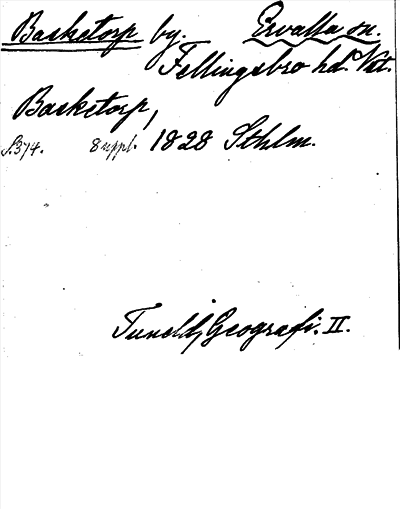 Basketorp by. Ervalla sn.
Fellingsbro hd. Vst.
Basketorp,
S.374. 8 uppl. 1828 Sthlm.
Tuneld, Geografi. II.